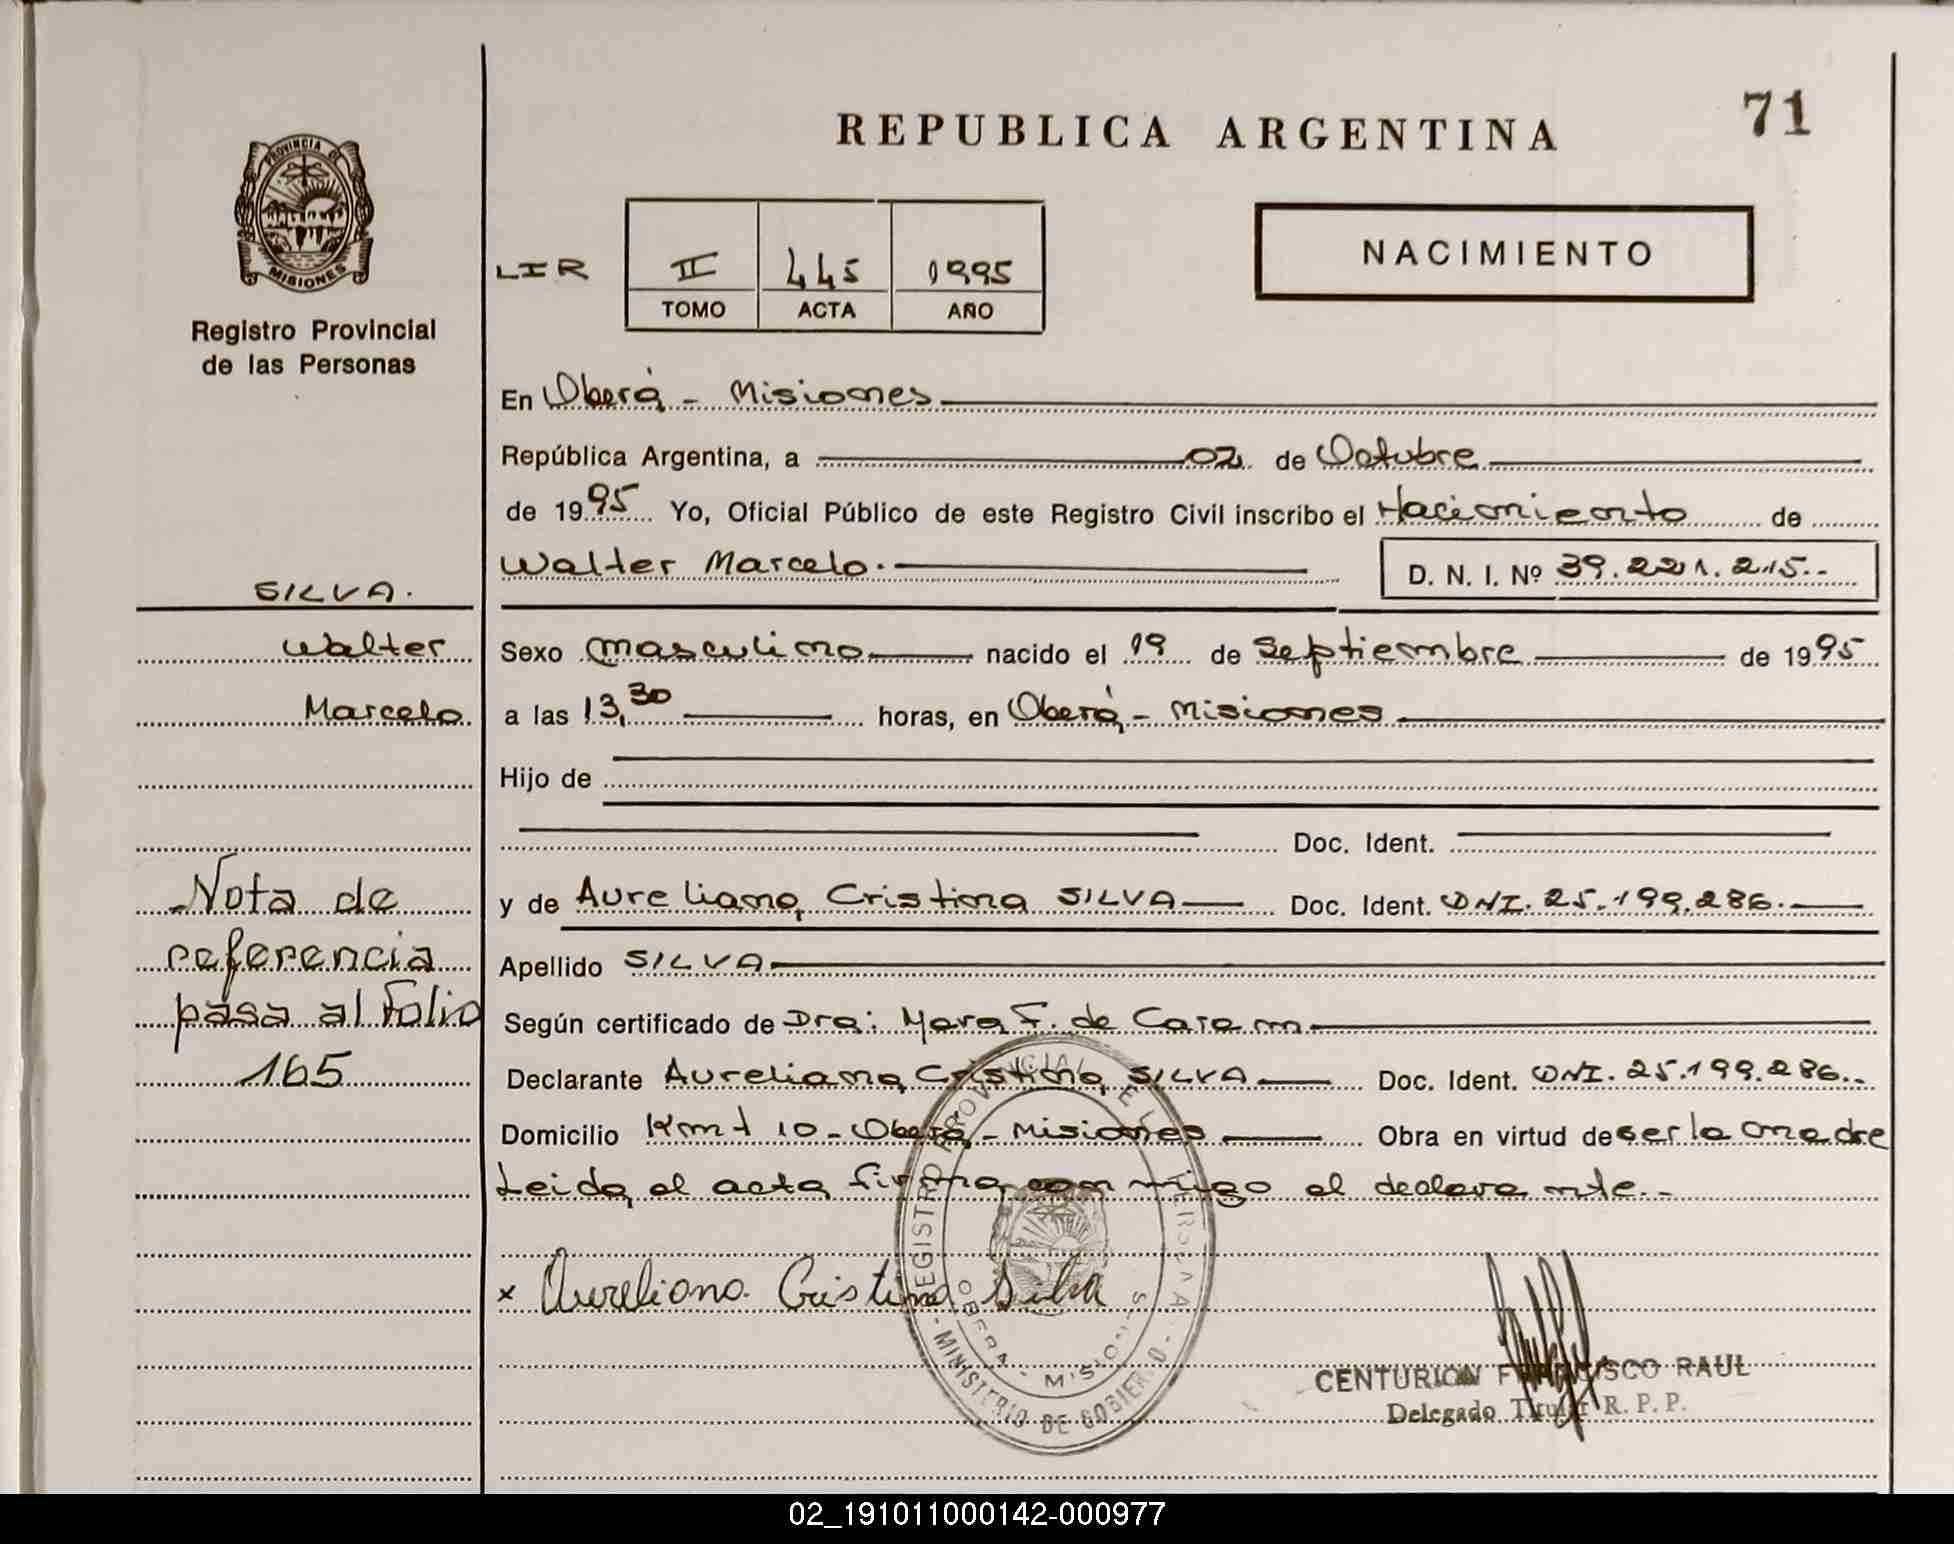 71
REPUBLICA ARGENTINA
PROVINCIA DE
MISIONES
Registro Provincial
de las Personas
LIR
II 445 1995
TOMO ACTA AÑO
NACIMIENTO
En Oberá - Misiones
República Argentina, a 02 de Octubre
de 1995 Yo, Oficial Público de este Registro Civil inscribo el Nacimiento de
Walter Marcelo.
D. N. I. Nº 39.221.215.-
SILVA.
Walter
Marcelo
Sexo masculino nacido el 19 de Septiembre de 1995
a las 13,30 horas, en Oberá - Misiones
Hijo de
Doc. Ident.
y de Aureliana Cristina SILVA Doc. Ident. DNI. 25.199.286.
Apellido SILVA
Según certificado de Dra: Mara F. de
Declarante Aureliana Cristina SILVA Doc. Ident. DNI. 25.199.286..
Domicilio Kmt 10 - Oberá - Misiones Obra en virtud de ser la madre
Leida el acta firma con migo el declarante.-
Nota de
referencia
pasa al Folio
165
x Aureliana Cristina Silva
REGISTRO PROVINCIAL DE L PERSONAS
MINISTERIO DE GOBIERNO
OBERA - MISIONES
CENTURION FRANCISCO RAUL
Delegado Titular R. P. P.
02_191011000142-000977